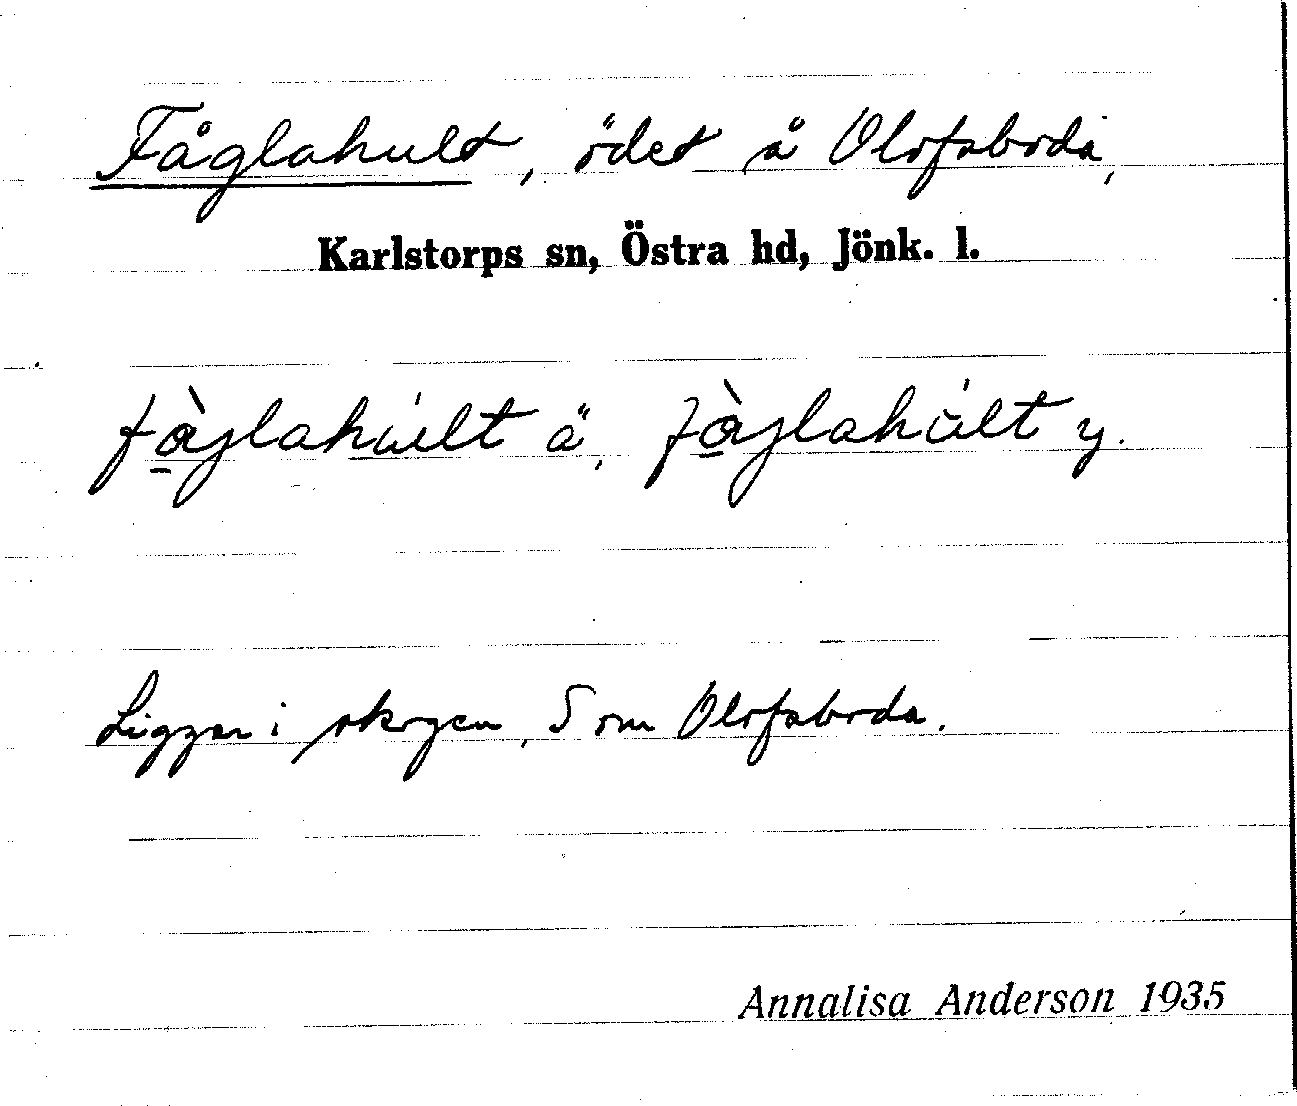 Fåglahult, ödet å Olofsboda,
Karlstorps sn, Östra hd, Jönk. l.
fàglahúlt ä, fàglahúlt y.
Ligger i skogen, S om Olofsboda.
Annalisa Anderson 1935